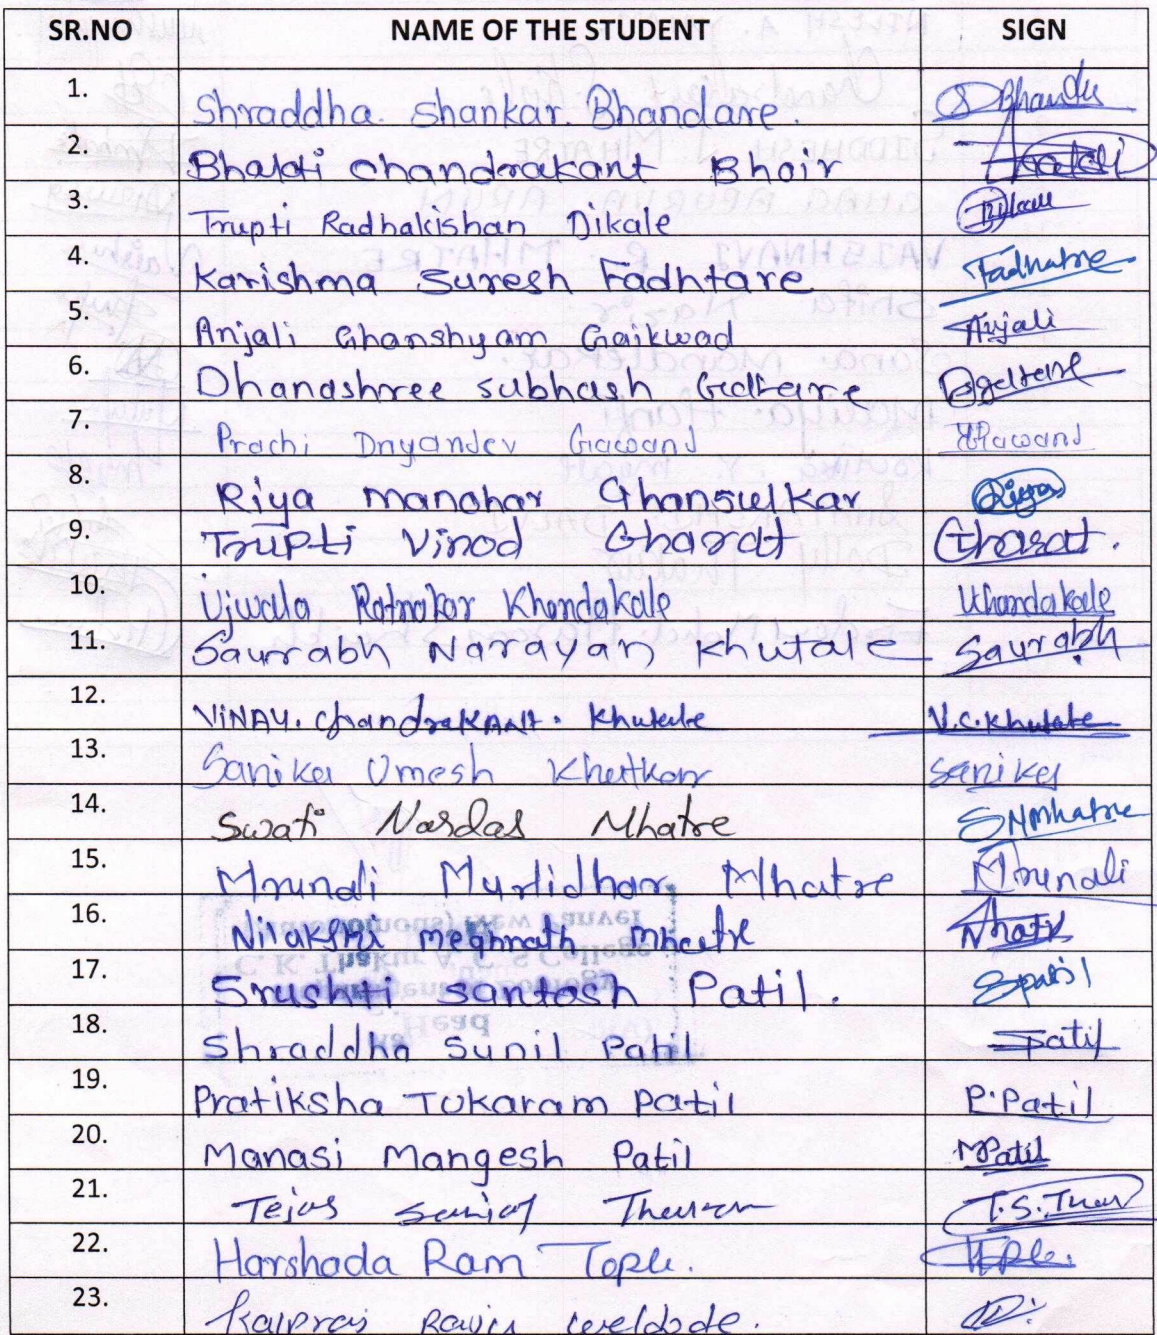 SR.NO NAME OF THE STUDENT SIGN
1. Shraddha. Shankar. Bhandare. S Bhandare
2. Bhakti Chandrakant Bhoir
3. Trupti Radhakishan Dikale Dikale
4. Karishma Suresh Fadhtare Fadhatre
5. Anjali Ghanshyam Gaikwad Anjali
6. Dhanashree subhash Galtare
7. Prachi Dnyandev Gawand Gawand
8. Riya manohar Ghansulkar Riya
9. Trupti Vinod Gharat Gharat.
10. Ujwala Ratnakar Khandakale Khandakale
11. Saurabh Narayan Khutale Saurabh
12. ViNAY. chandraKANt. Khutale V.C.Khutale
13. Sanika Umesh Khutkar Sanika
14. Swati Nardas Mhatre SNMhatre
15. Mrunali Murlidhar Mhatre Mrunali
16. Nilakshi Meghnath Mhatre Mhatre
17. Srushti Santosh Patil. Spatil
18. Shraddha Sunil Patil Spatil
19. Pratiksha TUkaram Patil P.Patil
20. Manasi Mangesh Patil MPatil
21. Tejas T.S.
22. Harshada Ram Tople. Tople.
23.